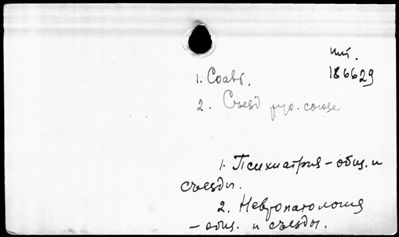 инт.
186629
1. Соавт.
2. Съезд рус. союза
1. Психиатрия - общ. и
съезды.
2. Невропатология
- общ. и съезды.